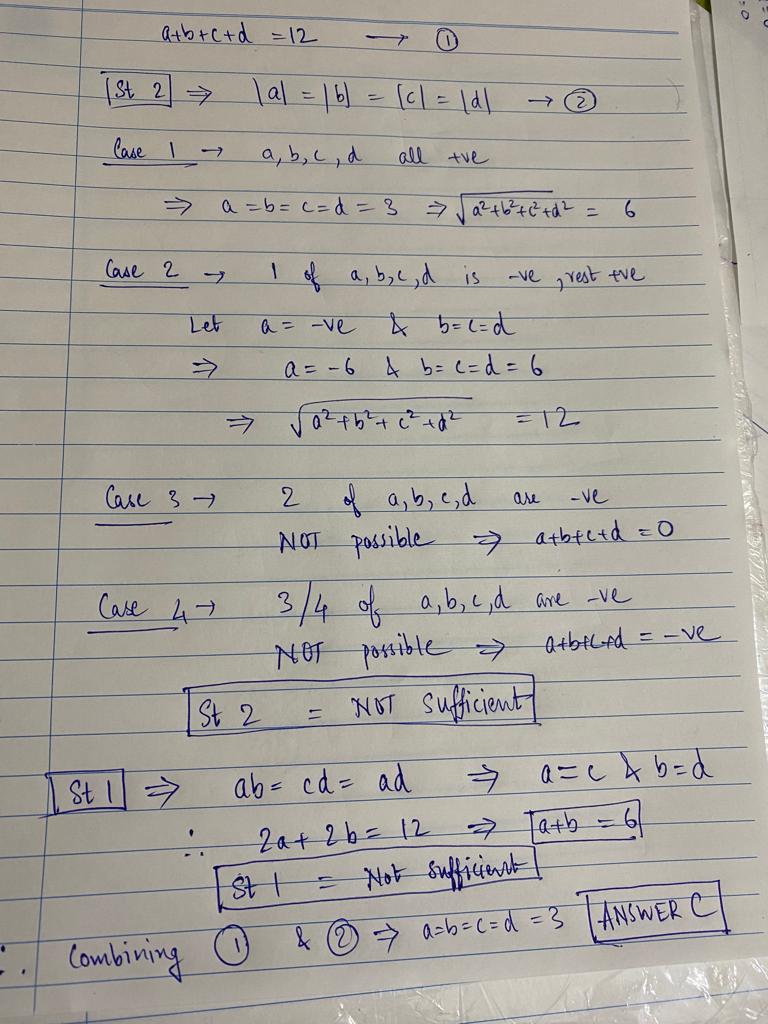 a+b+c+d = 12 → ①
St 2 ⇒ |a| = |b| = |c| = |d| → ②
Case 1 → a, b, c, d all +ve
⇒ a = b = c = d = 3 ⇒ √a²+b²+c²+d² = 6
Case 2 → 1 of a, b, c, d is -ve, rest +ve
Let a = -ve & b=c=d
⇒ a = -6 & b = c = d = 6
⇒ √a²+b²+c²+d² = 12
Case 3 → 2 of a, b, c, d are -ve
NOT possible ⇒ a+b+c+d = 0
Case 4 → 3/4 of a, b, c, d are -ve
NOT possible ⇒ a+b+c+d = -ve
St 2 = NOT Sufficient
St 1 ⇒ ab = cd = ad ⇒ a = c & b = d
∴ 2a + 2b = 12 ⇒ a+b = 6
St 1 = Not sufficient
∴ Combining ① & ② ⇒ a=b=c=d = 3 ANSWER C